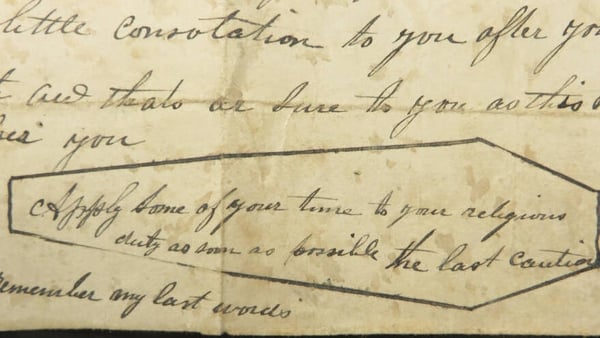 little consotation to you after yo
t and thats as sure to you as this
you
Apply some of your time to your religious
duty as soon as possible the last caution
remember my last words